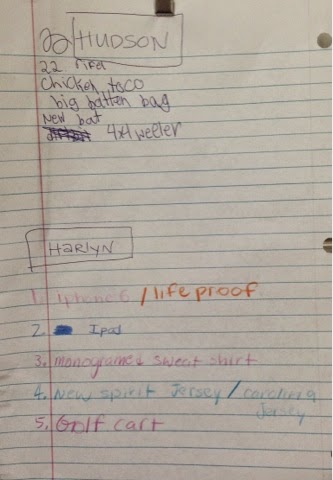 HUDSON
22 rifel
Chicken taco
big batten bag
New bat
4x4 weeler
Harlyn
1. iphone 6 / lifeproof
2. Ipod
3. monogramed sweat shirt
4. New spirit Jersey / carolina
Jersey
5. Golf cart